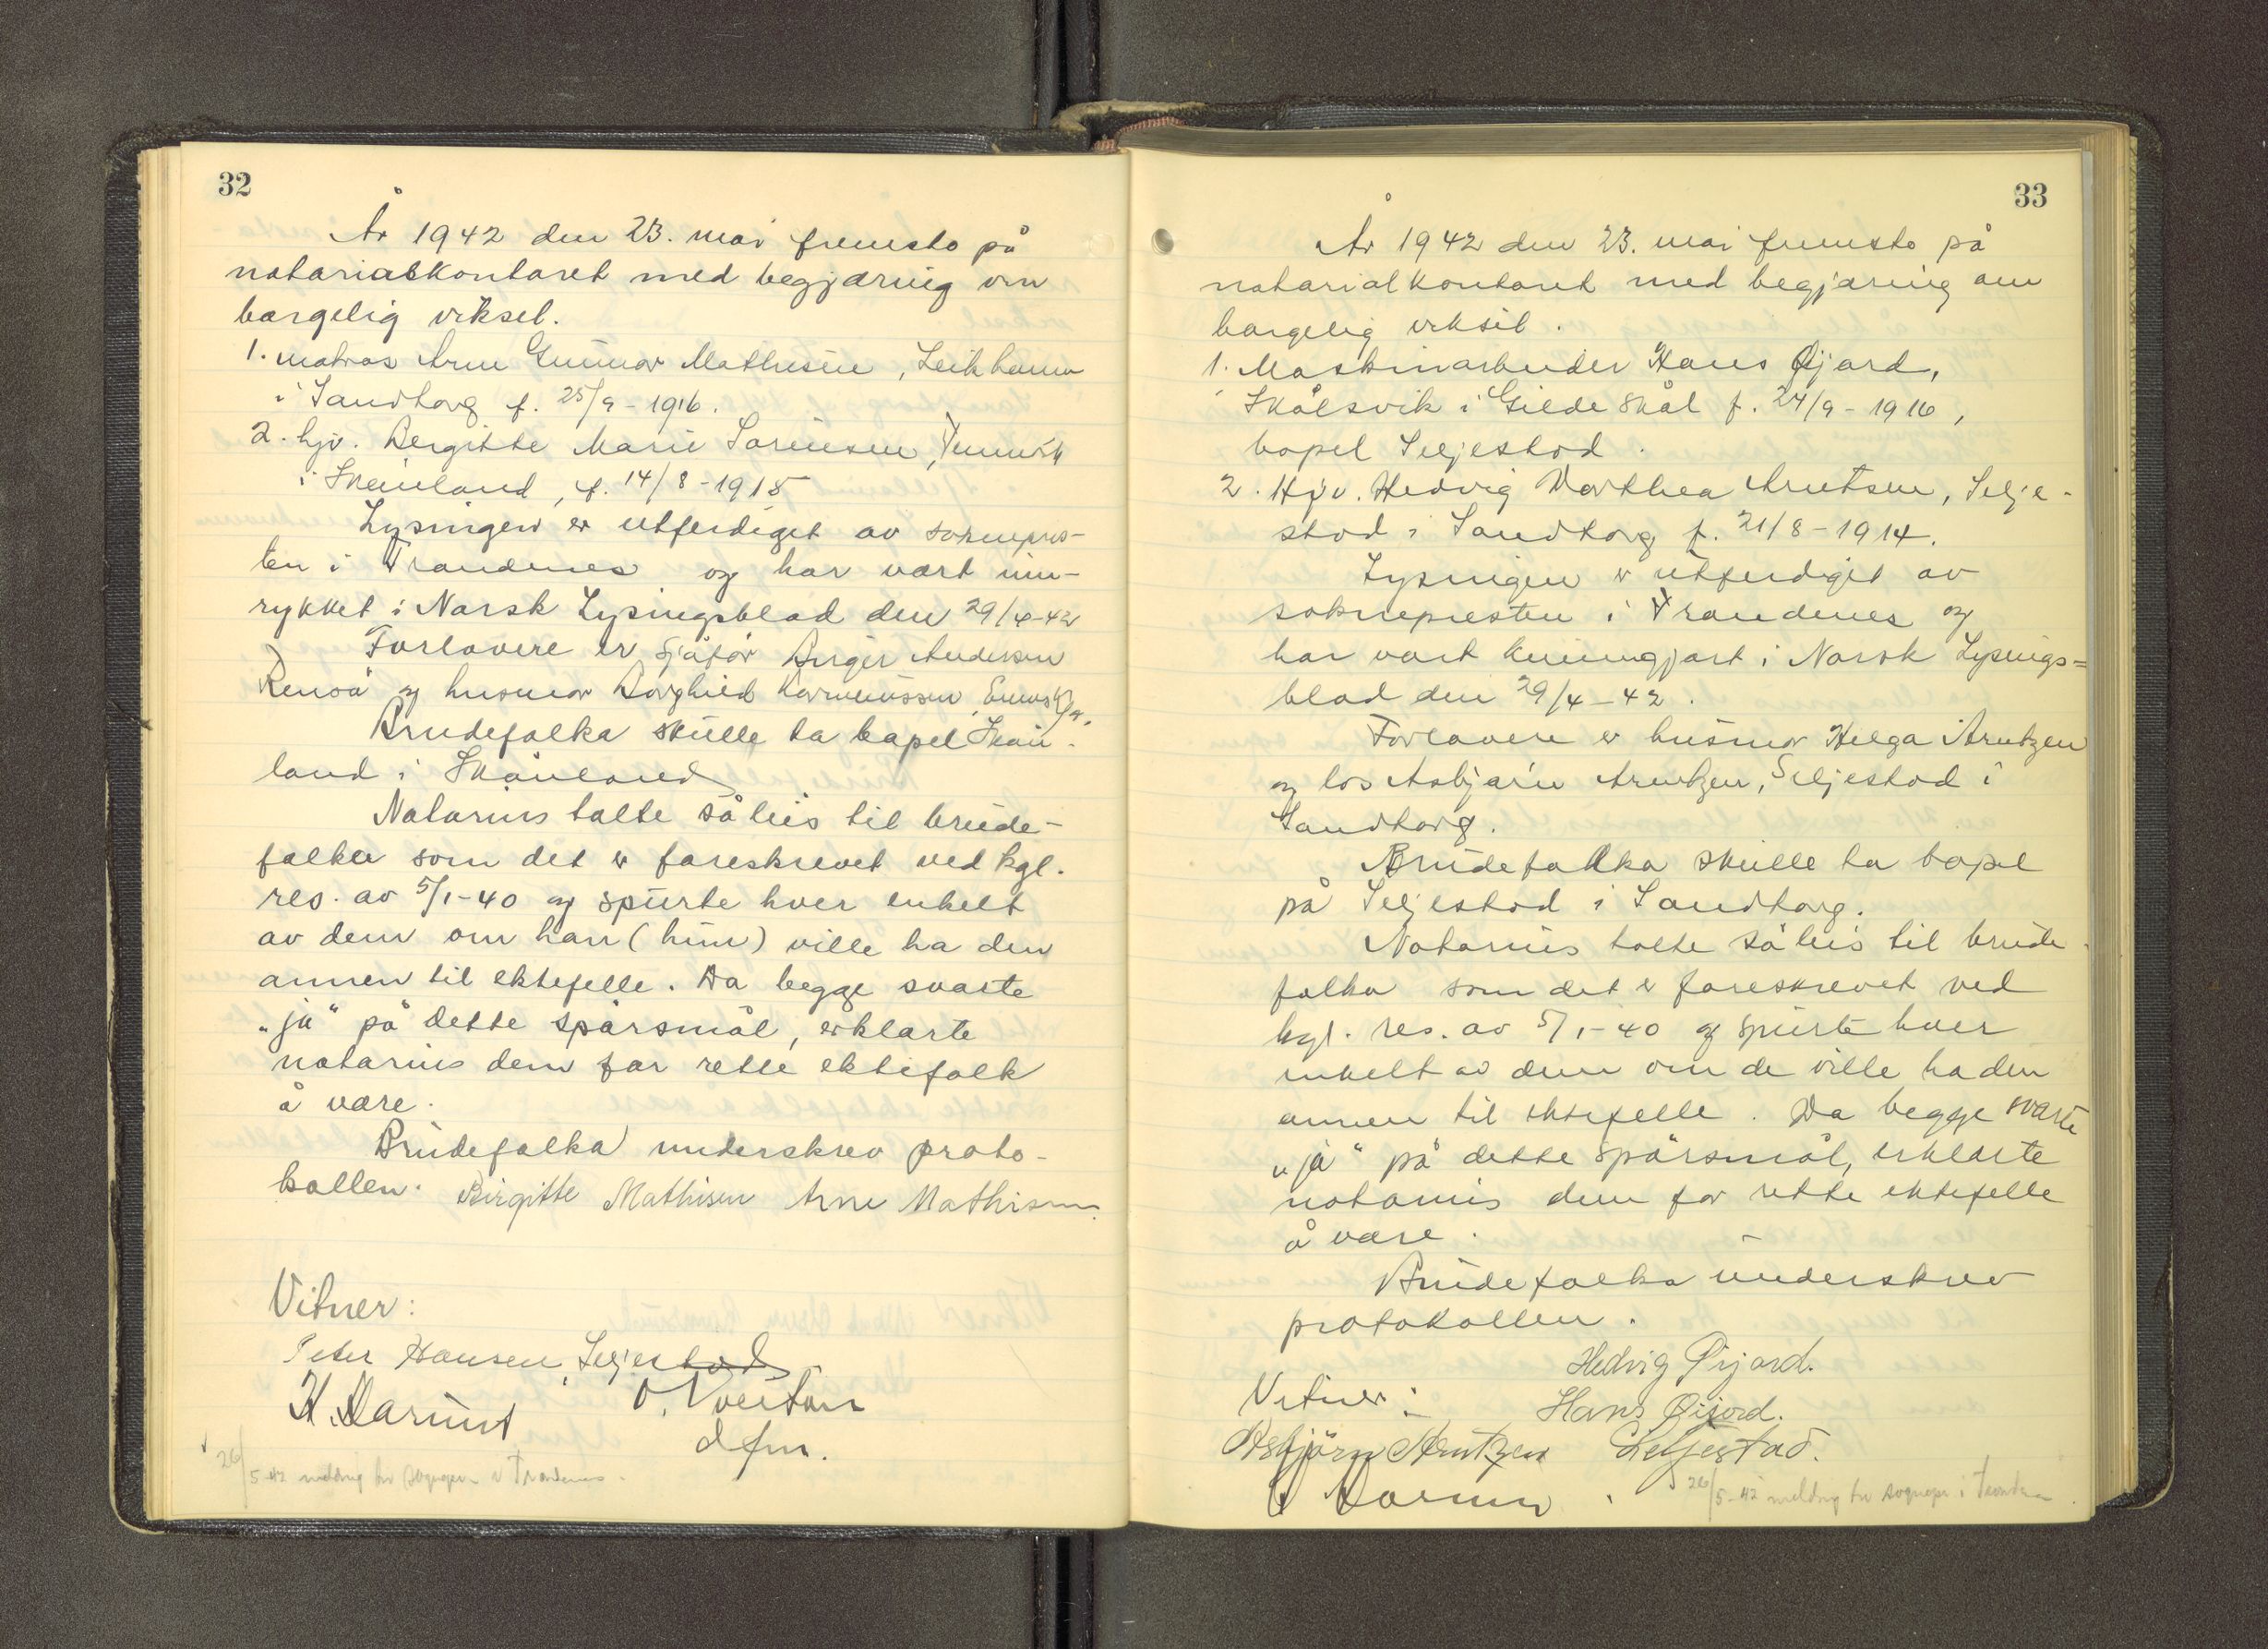 32
År 1942 den 23. mai fremsto på
notarialkontoret med begjæring om
borgelig viksel.
1. matros Arne Gunnar Mathisen,
i Sandtorg f. 25/9-1916.
2. hjv. Bergitte Marie Sørensen,
i Skånland, f. 14/8-1915
Lysningen er utferdiget av sokneprës-
ten i Trondenes og har vært inn-
rykket i Norsk Lysingsblad den 29/4-42
Forlovere er sjåfør Birger Andersen
Renså og husmor Borghild
Brudefolka skulle ta bopel Skån-
land i Skånland
Notarius talte såleis til brude-
folka som det er foreskrevet ved kgl.
res. av 5/1-40 og spurte hver enkelt
av dem om han (hun) ville ha den
annen til ektefelle. Da begge svarte
"ja" på dette spørsmål, erklærte
notarius dem for rette ektefolk
å være.
Brudefolka underskrev proto-
kollen. Birgitte Mathisen Arne Mathisen.
Vitner:
Peter Hansen, Seljestad
dfm.
26/5-42 melding til sogнepr. i Trondenes.
33
År 1942 den 23. mai fremsto på
notarialkontoret med begjæring om
borgelig viksel.
1. Maskinarbeider Hans Øijord,
Skålsvik i Gildeskål f. 24/9-1916,
bopel Seljestad.
2. Hjv. Hedvig Dorthea Arntsen, Selje-
stad i Sandtorg f. 21/8-1914.
Lysningen er utferdiget av
soknepresten i Trondenes og
har vært kunngjort i Norsk Lysings=
blad den 29/4-42.
Forlovere er husmor Helga Arntzen
og los Asbjørn Arntzen, Seljestad i
Sandtorg.
Brudefolka skulle ta bopel
på Seljestad i Sandtorg.
Notarius talte såleis til brude-
folka som det er foreskrevet ved
kgl. res. av 5/1-40 og spurte hver
enkelt av dem om de ville ha den
annen til ektefelle. Da begge svarte
"ja" på dette spørsmål, erklærte
notarius dem for rette ektefelle
å være.
Brudefolka underskrev
protokollen.
Hedvig Øijord.
Vitner:
Hans Øijord.
Asbjörn Arntzen Seljestad.
26/5-42 melding til sognepr. i